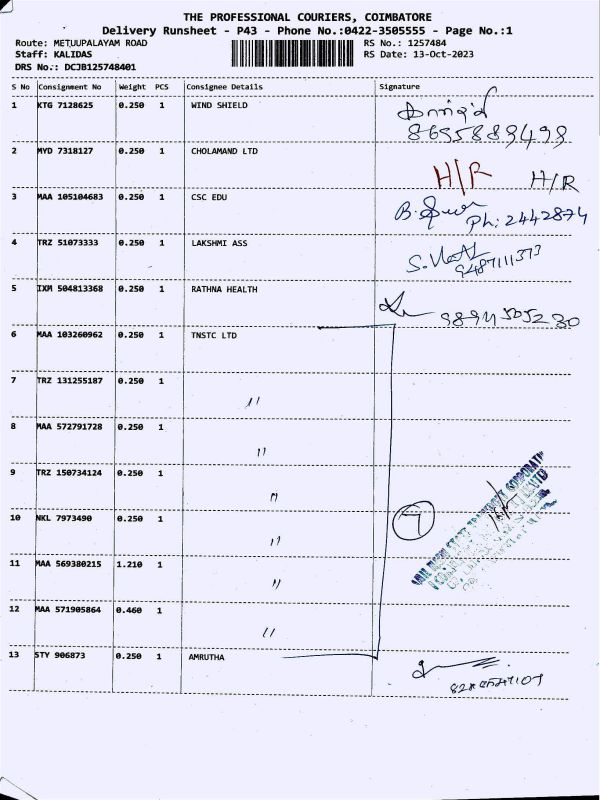 THE PROFESSIONAL COURIERS, COIMBATORE
Delivery Runsheet - P43 - Phone No.:0422-3505555 - Page No.:1
Route: METUUPALAYAM ROAD
Staff: KALIDAS
DRS No.: DCJB125748401
RS No.: 1257484
RS Date: 13-Oct-2023
S No Consignment No Weight PCS Consignee Details Signature
1 KTG 7128625 0.250 1 WIND SHIELD
8695889498
2 MYD 7318127 0.250 1 CHOLAMAND LTD
H/R H/R
3 MAA 105104683 0.250 1 CSC EDU
Ph: 2442874
4 TRZ 51073333 0.250 1 LAKSHMI ASS
9487111373
5 IXM 504813368 0.250 1 RATHNA HEALTH
6 MAA 103260962 0.250 1 TNSTC LTD
7 TRZ 131255187 0.250 1
"
8 MAA 572791728 0.250 1
"
9 TRZ 150734124 0.250 1
"
10 NKL 7973490 0.250 1
" 7
11 MAA 569380215 1.210 1
"
12 MAA 571905864 0.460 1
"
13 STY 906873 0.250 1 AMRUTHA